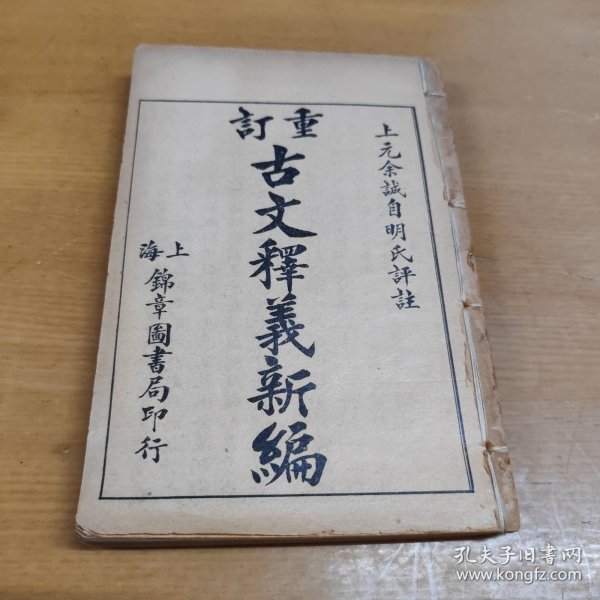 上元余誠自明氏評註
重訂
古文釋義新編
上海
錦章圖書局印行
孔夫子旧书网
www.kongfz.com